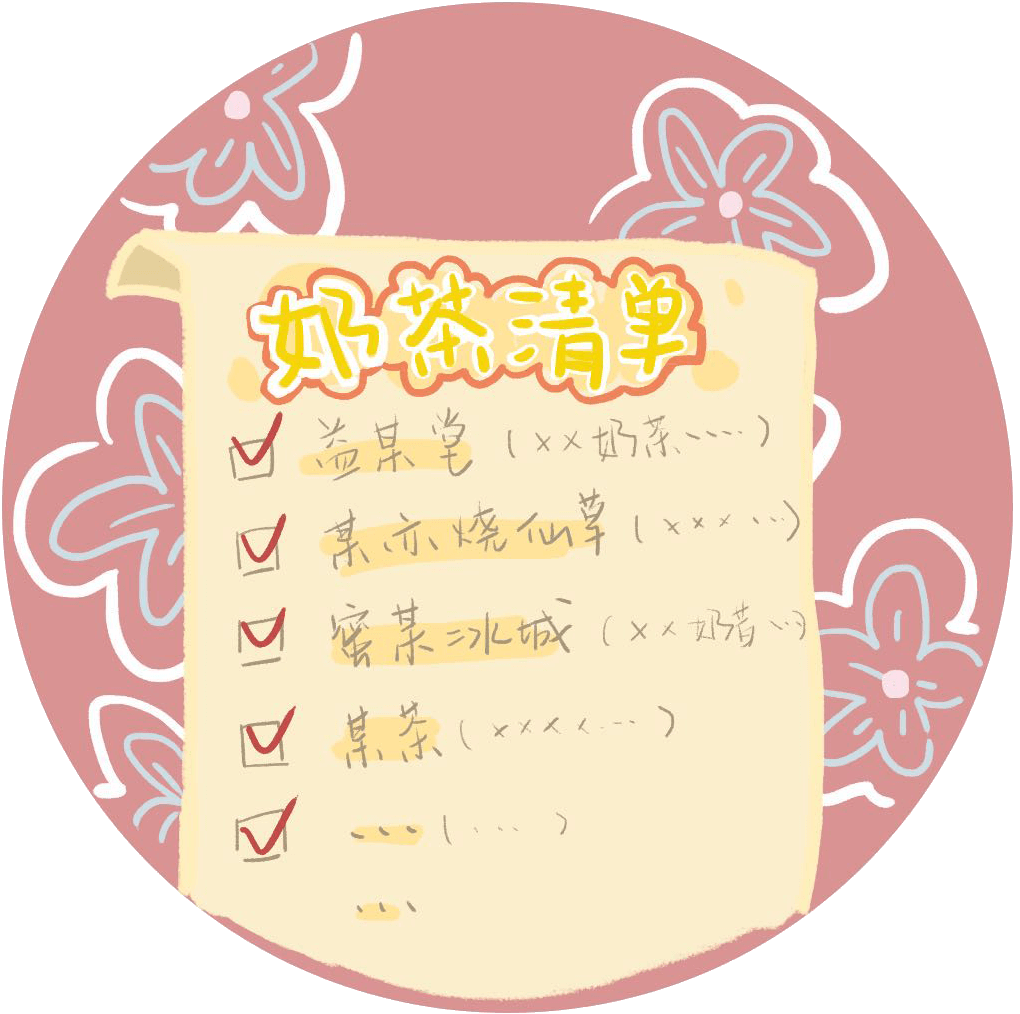 奶茶清单
益某堂（××奶茶……）
某亦烧仙草（×××…）
蜜某冰城（××奶昔…）
某茶（××××……）
…（…）
…